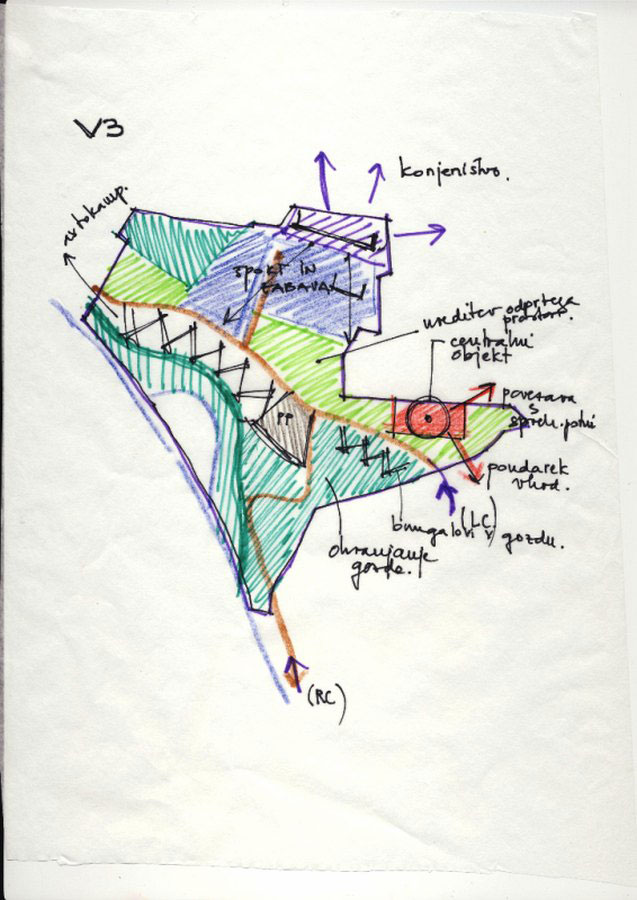 V3
konjeništvo.
avtokamp.
šport in
zabava
ureditev odprtega
prostora.
centralni
objekt
povezava
s
spreh. potni
poudarek
vhod.
PP
(LC)
bungalovi v gozdu.
ohranjanje
gozda.
(RC)